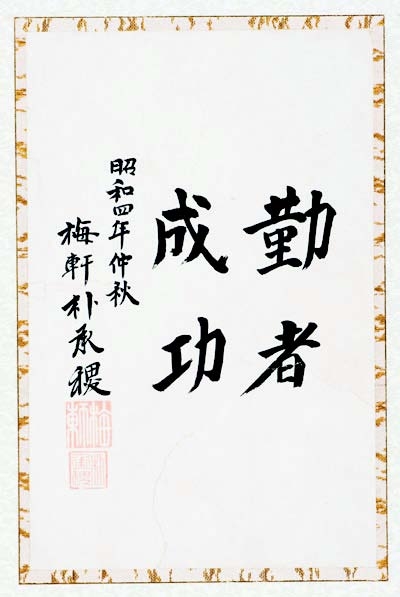 勤者
成功
昭和四年仲秋
梅軒朴承稷
梅軒